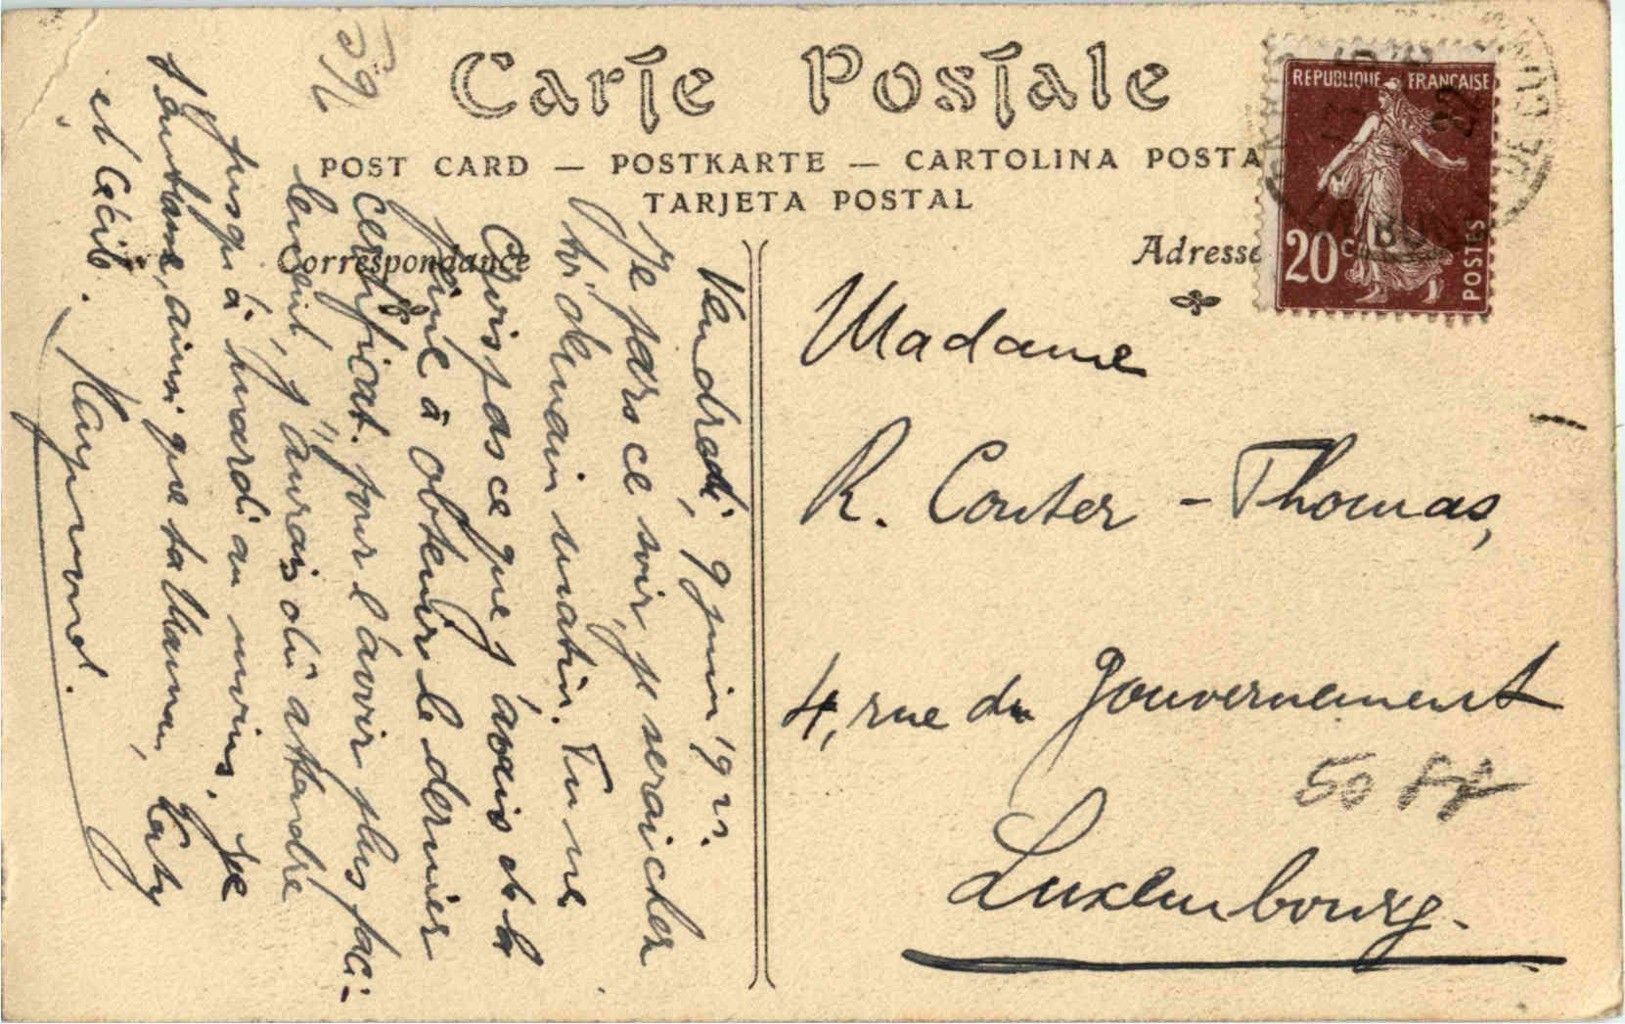 Carte Postale
POST CARD — POSTKARTE — CARTOLINA POSTA
TARJETA POSTAL
Correspondance
Adresse
REPUBLIQUE FRANÇAISE
20c
POSTES
Vendredi, 9 juin 1922.
Je pars ce soir, je serai chez
toi demain matin. Tu ne
crois pas ce que j'avais de la
peine à obtenir le dernier
certificat. Pour l'avoir plus faci-
lement, j'aurais dû attendre
jusqu'à mardi au moins. Je
t'embrasse, ainsi que ta Maman, Caty
et Cécile.
Raymond.
Madame
R. Conter - Thomas,
4, rue du Gouvernement
Luxembourg.
50